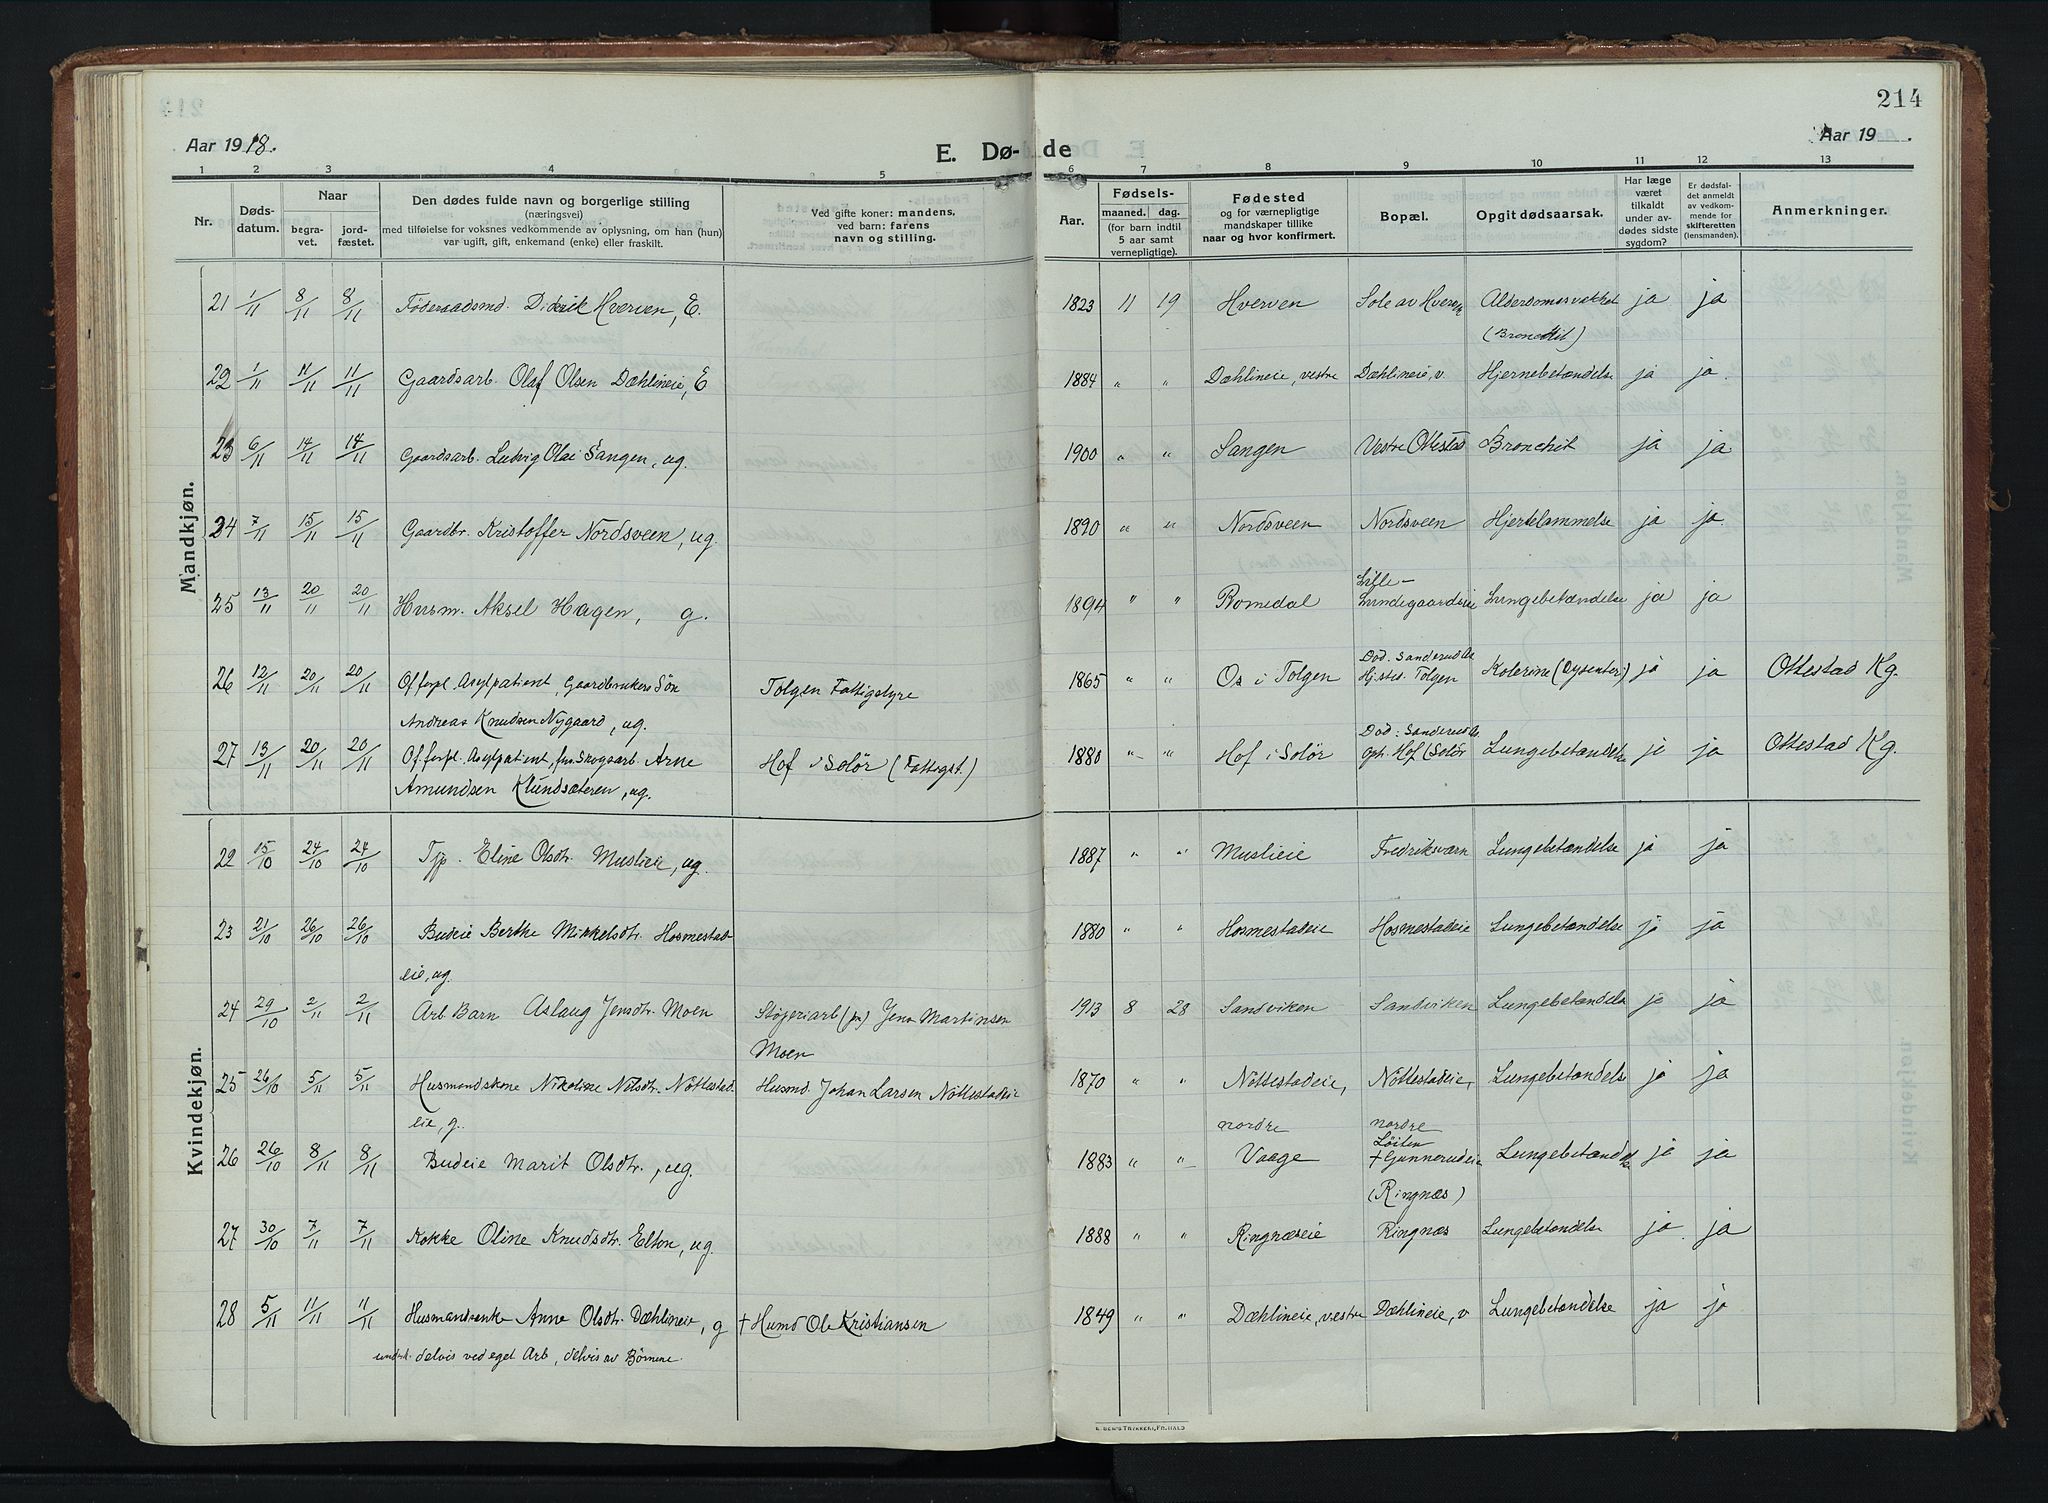 214
Aar 1918.
E. Dø-de
Aar 19 .
1 2 3 4 5 6 7 8 9 10 11 12 13
Nr.
Døds-datum.
Naar
begra-vet.
jord-fæstet.
Den dødes fulde navn og borgerlige stilling
(næringsvei)
med tilføielse for voksnes vedkommende av oplysning, om han (hun)
var ugift, gift, enkemand (enke) eller fraskilt.
Ved gifte koner: mandens,
ved barn: farens
navn og stilling.
Aar.
Fødsels-
maaned. dag.
(for barn indtil
5 aar samt
vernepligtige).
Fødested
og for værnepligtige
mandskaper tillike
naar og hvor konfirmert.
Bopæl.
Opgit dødsaarsak.
Har læge
været
tilkaldt
under av-
dødes sidste
sygdom?
Er dødsfal-
det anmeldt
av vedkom-
mende for
skifteretten
(lensmanden).
Anmerkninger.
Mandkjøn.
21 1/11 8/11 8/11 Føderaadsmd. Didrik Hverven, E. 1823 11 19 Hverven Sole av Hverven Alderdomssvækket ja ja
(Bronchit)
22 1/11 11/11 11/11 Gaardsarb. Olaf Olsen Dæhlineie, E 1884 " " Dæhlineie, vestre Dæhlineie, v. Hjernebetændelse ja ja.
23 6/11 14/11 14/11 Gaardsarb. Ludvig Olai Sangen, ug. 1900 " " Sangen Vestre Ottestad Bronchit ja ja
24 7/11 15/11 15/11 Gaardbr. Kristoffer Nordsveen, ug. 1890 " " Nordsveen Nordsveen Hjertelammelse ja ja
25 13/11 20/11 20/11 Husm. Aksel Hagen, g. 1894 " " Romedal Lille-
Lundegaardseie Lungebetændelse ja ja
26 12/11 20/11 20/11 Off. forpl. Asylpatient, Gaardbrukers Søn Tolgen Fattigstyre 1865 " " Os i Tolgen Død: Sanderud As.
Hj.sted. Tolgen Kolerine (Dysenteri) ja ja Ottestad Kg.
Andreas Knudsen Nygaard, ug.
27 13/11 20/11 20/11 Off. forpl. Asylpatient, fhv. Skogsarb. Arne Hof i Solør (Fattigst.) 1880 " " Hof i Solør Død: Sanderud As.
oph. Hof (Solør Lungebetændelse ja ja Ottestad Kg.
Amundsen Klundsæteren, ug.
Kvindekjøn.
22 15/10 24/10 24/10 Tjp. Eline Olsdtr. Muslieie, ug. 1887 " " Muslieie Fredriksværn Lungebetændelse ja ja
23 21/10 26/10 26/10 Budeie Berthe Mikkelsdtr. Hosmestad- 1880 " " Hosmestadeie Hosmestadeie Lungebetændelse ja ja
eie, ug.
24 29/10 2/11 2/11 Arb Barn Aslaug Jensdtr. Moen Støperiarb Jens Martinsen 1913 8 28 Sandviken Sandviken Lungebetændelse ja ja
Moen
25 26/10 5/11 5/11 Husmandskone Nikoline Nilsdtr. Nøttestad- Husmd. Johan Larsen Nøttestadeie 1870 " " Nøttestadeie, Nøttestadeie, Lungebetændelse ja ja
eie, g. nordre nordre
26 26/10 8/11 8/11 Budeie Marit Olsdtr., ug. 1883 " " Vaage Løiten
+ Gunnerudeie Lungebetændelse ja ja
(Ringnæs)
27 30/10 7/11 7/11 Kokke Oline Knudsdtr. Elton, ug. 1888 " " Ringnæseie Ringnæs Lungebetændelse ja ja
28 5/11 11/11 11/11 Husmandsenke Anne Olsdtr. Dæhlineie, g + Husmd Ole Kristiansen 1849 " " Dæhlineie, vestre Dæhlineie, v Lungebetændelse ja ja
underh. delvis ved eget Arb, delvis av Børnene.